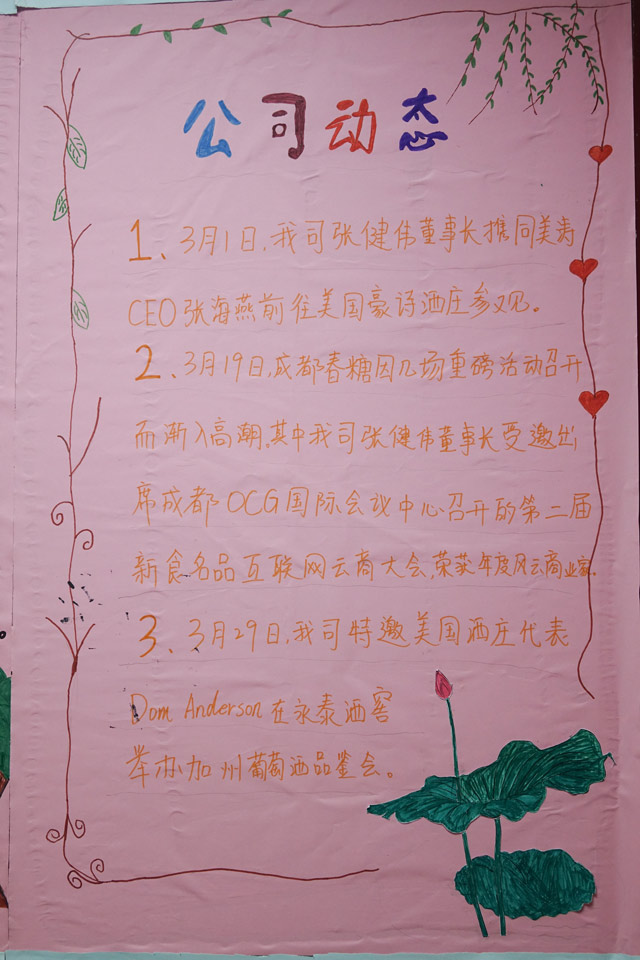 公司动态
1、3月1日,我司张健伟董事长携同美寿
CEO张海燕前往美国豪诗酒庄参观。
2、3月19日,成都春糖因几场重磅活动召开
而渐入高潮,其中我司张健伟董事长受邀出
席成都OCG国际会议中心召开的第二届
新食名品互联网云商大会,荣获年度风云商业家.
3、3月29日,我司特邀美国酒庄代表
Dom Anderson在永泰酒窖
举办加州葡萄酒品鉴会。